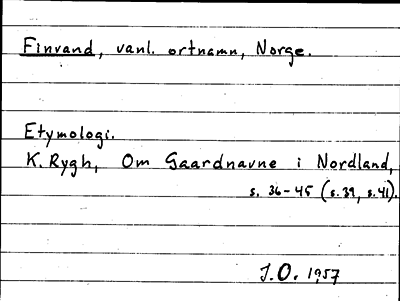 Finvand, vanl. ortnamn, Norge.
Etymologi.
K. Rygh, Om Gaardnavne i Nordland,
s. 36-45 (s. 39, s. 41).
J.O. 1957